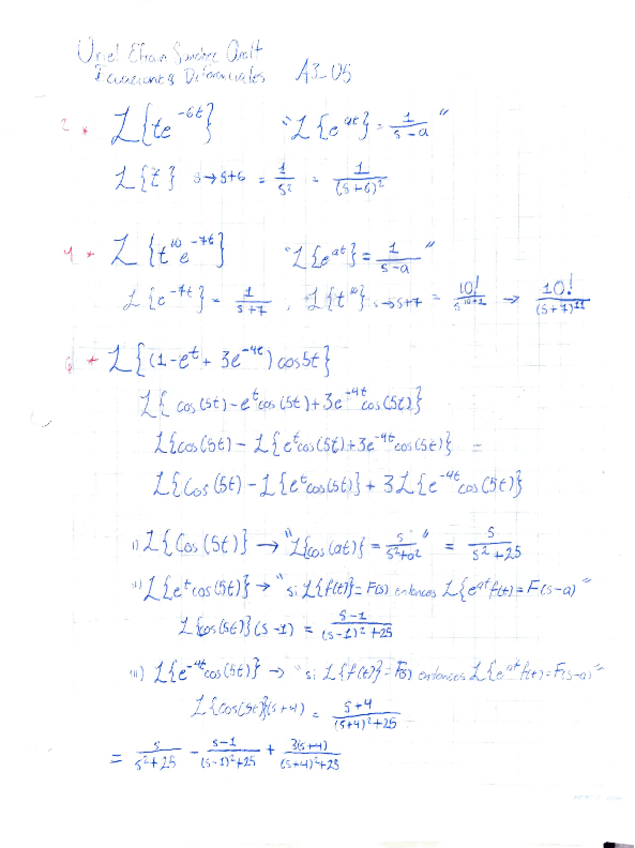 Uriel Efrain Sanchez
Ecuaciones Diferenciales A3_05
2 * ℒ{te^{-6t}} "ℒ{e^{at}} = \frac{1}{s-a}"
ℒ{t} s→s+6 = \frac{1}{s^2} = \frac{1}{(s+6)^2}
4 * ℒ{t^{10}e^{-7t}} "ℒ{e^{at}} = \frac{1}{s-a}"
ℒ{e^{-7t}} = \frac{1}{s+7} , ℒ{t^{10}} s→s+7 = \frac{10!}{s^{10+1}} → \frac{10!}{(s+7)^{11}}
6 * ℒ{(1-e^t+3e^{-4t})cos5t}
ℒ{cos(5t)-e^t cos(5t)+3e^{-4t}cos(5t)}
ℒ{cos(5t)-ℒ{e^t cos(5t)+3e^{-4t}cos(5t)} =
ℒ{Cos(5t)-ℒ{e^t cos(5t)}+3ℒ{e^{-4t}cos(5t)}
i) ℒ{Cos(5t)} → "ℒ{cos(at)} = \frac{s}{s^2+a^2}" = \frac{s}{s^2+25}
ii) ℒ{e^t cos(5t)} → "si ℒ{f(t)}=F(s) entonces ℒ{e^{at}f(t)=F(s-a)"
ℒ{cos(5t)}(s-1) = \frac{s-1}{(s-1)^2+25}
iii) ℒ{e^{-4t}cos(5t)} → "si ℒ{f(t)}=F(s) entonces ℒ{e^{at}f(t)=F(s-a)"
ℒ{cos(5t)}(s+4) = \frac{s+4}{(s+4)^2+25}
= \frac{s}{s^2+25} - \frac{s-1}{(s-1)^2+25} + \frac{3(s+4)}{(s+4)^2+25}